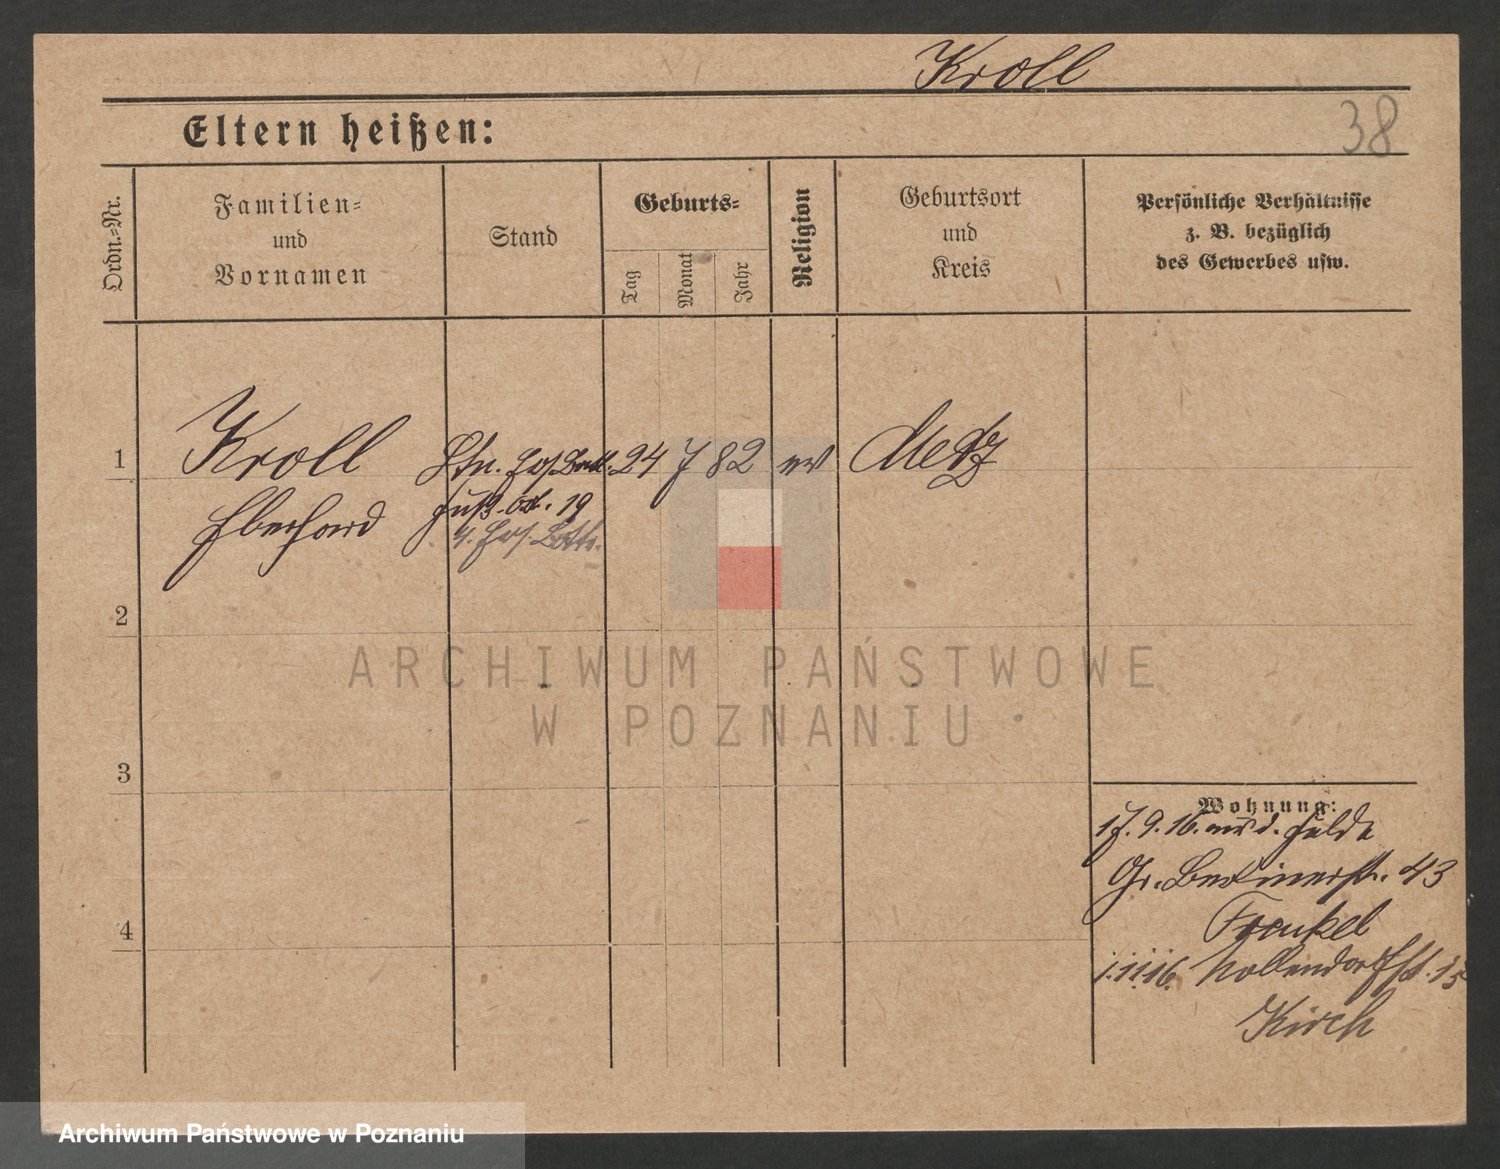 Kroll
38
Eltern heißen:
Ordn.=Nr.
Familien=
und
Vornamen
Stand
Geburts=
Tag
Monat
Jahr
Religion
Geburtsort
und
Kreis
Persönliche Verhältnisse
z. B. bezüglich
des Gewerbes usw.
1
Kroll
Eberhard
Ltn. Ers. Batl.
Fuß. 19
4. Ers. Battr.
24 7 82
ev
Metz
2
ARCHIWUM PAŃSTWOWE
W POZNANIU
3
4
Wohnung:
17. 9. 16. aus d. Felde
Gr. Berlinerstr. 43
Frankel
1. 11. 16. Nollendorffst. 15
Kirch
Archiwum Państwowe w Poznaniu